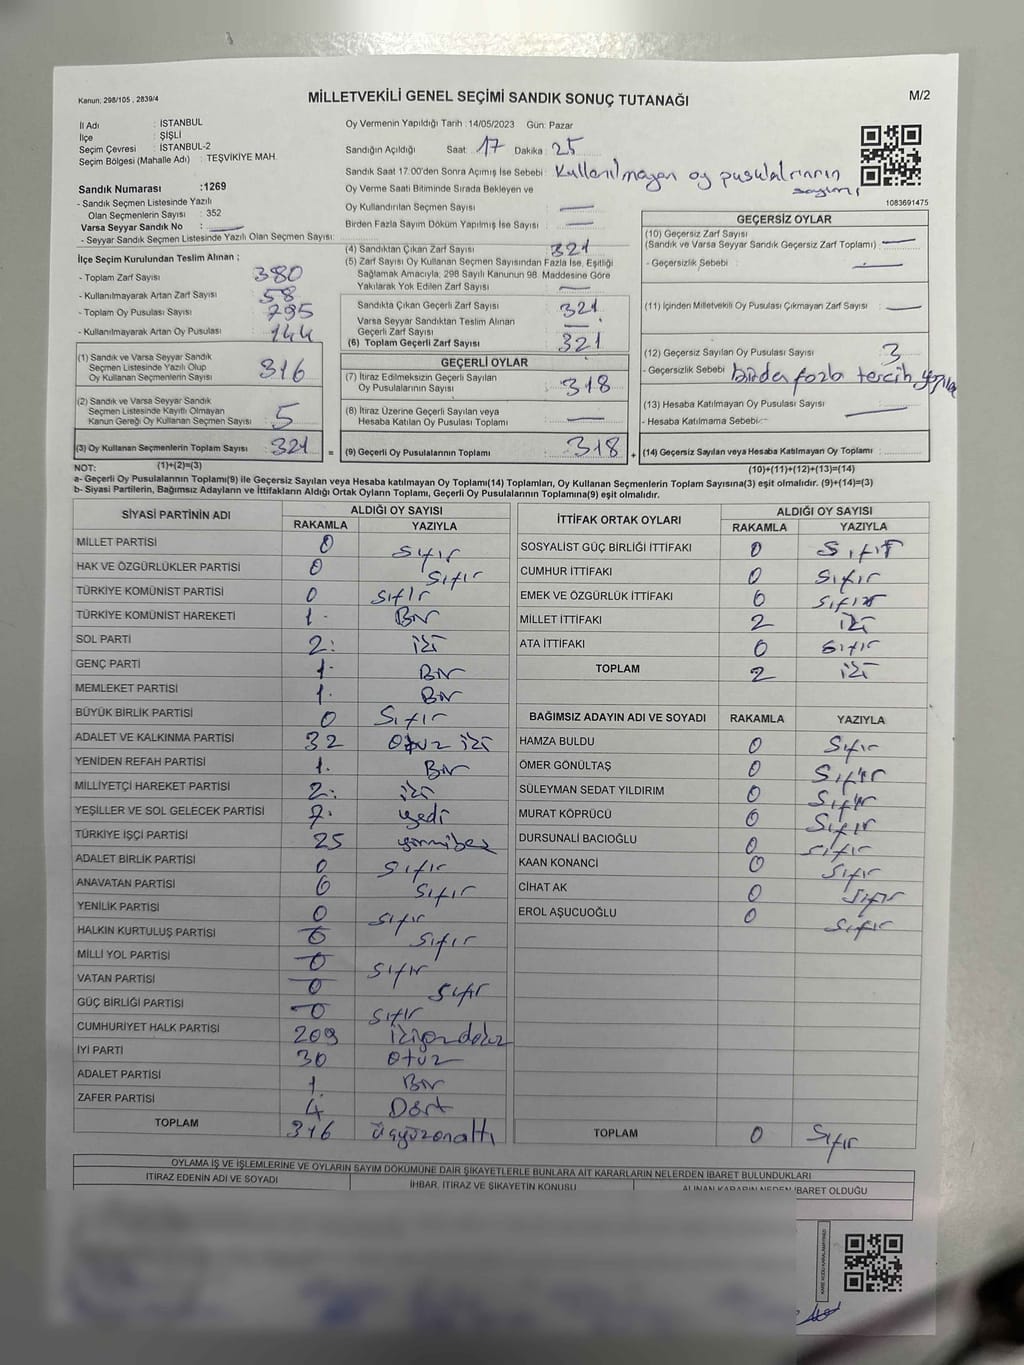 Kanun; 298/105 , 2839/4
MİLLETVEKİLİ GENEL SEÇİMİ SANDIK SONUÇ TUTANAĞI
M/2
İl Adı : İSTANBUL
İlçe : ŞİŞLİ
Seçim Çevresi : İSTANBUL-2
Seçim Bölgesi (Mahalle Adı) : TEŞVİKİYE MAH.
Oy Vermenin Yapıldığı Tarih : 14/05/2023 Gün: Pazar
Sandığın Açıldığı Saat: 17 Dakika : 25
Sandık Saat 17.00'den Sonra Açımış İse Sebebi : Kullanılmayan oy pusulalarının sayımı
Oy Verme Saati Bitiminde Sırada Bekleyen ve
Oy Kullandırılan Seçmen Sayısı : —
Birden Fazla Sayım Döküm Yapılmış İse Sayısı : —
1083691475
Sandık Numarası :1269
- Sandık Seçmen Listesinde Yazılı
Olan Seçmenlerin Sayısı : 352
Varsa Seyyar Sandık No : —
- Seyyar Sandık Seçmen Listesinde Yazılı Olan Seçmen Sayısı:
İlçe Seçim Kurulundan Teslim Alınan ;
- Toplam Zarf Sayısı : 380
- Kullanılmayarak Artan Zarf Sayısı : 58
- Toplam Oy Pusulası Sayısı : 795
- Kullanılmayarak Artan Oy Pusulası : 144
(1) Sandık ve Varsa Seyyar Sandık
Seçmen Listesinde Yazılı Olup
Oy Kullanan Seçmenlerin Sayısı : 316
(2) Sandık ve Varsa Seyyar Sandık
Seçmen Listesinde Kayıtlı Olmayan
Kanun Gereği Oy Kullanan Seçmen Sayısı : 5
(3) Oy Kullanan Seçmenlerin Toplam Sayısı : 321
(4) Sandıktan Çıkan Zarf Sayısı : 321
(5) Zarf Sayısı Oy Kullanan Seçmen Sayısından Fazla İse, Eşitliği
Sağlamak Amacıyla, 298 Sayılı Kanunun 98. Maddesine Göre
Yakılarak Yok Edilen Zarf Sayısı : —
Sandıkta Çıkan Geçerli Zarf Sayısı : 321
Varsa Seyyar Sandıktan Teslim Alınan
Geçerli Zarf Sayısı : —
(6) Toplam Geçerli Zarf Sayısı : 321
GEÇERLİ OYLAR
(7) İtiraz Edilmeksizin Geçerli Sayılan
Oy Pusulalarının Sayısı : 318
(8) İtiraz Üzerine Geçerli Sayılan veya
Hesaba Katılan Oy Pusulası Toplamı : —
= (9) Geçerli Oy Pusulalarının Toplamı : 318 +
GEÇERSİZ OYLAR
(10) Geçersiz Zarf Sayısı
(Sandık ve Varsa Seyyar Sandık Geçersiz Zarf Toplamı) : —
- Geçersizlik Sebebi : —
(11) İçinden Milletvekili Oy Pusulası Çıkmayan Zarf Sayısı : —
(12) Geçersiz Sayılan Oy Pusulası Sayısı : 3
- Geçersizlik Sebebi : birden fazla tercih
(13) Hesaba Katılmayan Oy Pusulası Sayısı : —
- Hesaba Katılmama Sebebi:
(14) Geçersiz Sayılan veya Hesaba Katılmayan Oy Toplamı :
NOT: (1)+(2)=(3)
(10)+(11)+(12)+(13)=(14)
a- Geçerli Oy Pusulalarının Toplamı(9) ile Geçersiz Sayılan veya Hesaba katılmayan Oy Toplamı(14) Toplamları, Oy Kullanan Seçmenlerin Toplam Sayısına(3) eşit olmalıdır. (9)+(14)=(3)
b- Siyasi Partilerin, Bağımsız Adayların ve İttifakların Aldığı Ortak Oyların Toplamı, Geçerli Oy Pusulalarının Toplamına(9) eşit olmalıdır.
SİYASİ PARTİNİN ADI ALDIĞI OY SAYISI
RAKAMLA YAZIYLA
MİLLET PARTİSİ 0 Sıfır
HAK VE ÖZGÜRLÜKLER PARTİSİ 0 Sıfır
TÜRKİYE KOMÜNİST PARTİSİ 0 Sıfır
TÜRKİYE KOMÜNİST HAREKETİ 1 Bir
SOL PARTİ 2 iki
GENÇ PARTİ 1 Bir
MEMLEKET PARTİSİ 1 Bir
BÜYÜK BİRLİK PARTİSİ 0 Sıfır
ADALET VE KALKINMA PARTİSİ 32 Otuz iki
YENİDEN REFAH PARTİSİ 1 Bir
MİLLİYETÇİ HAREKET PARTİSİ 2 iki
YEŞİLLER VE SOL GELECEK PARTİSİ 7 yedi
TÜRKİYE İŞÇİ PARTİSİ 25 yirmibeş
ADALET BİRLİK PARTİSİ 0 Sıfır
ANAVATAN PARTİSİ 0 Sıfır
YENİLİK PARTİSİ 0 Sıfır
HALKIN KURTULUŞ PARTİSİ 0 Sıfır
MİLLİ YOL PARTİSİ 0 Sıfır
VATAN PARTİSİ 0 Sıfır
GÜÇ BİRLİĞİ PARTİSİ 0 Sıfır
CUMHURİYET HALK PARTİSİ 209 ikiyüzdokuz
İYİ PARTİ 30 Otuz
ADALET PARTİSİ 1 Bir
ZAFER PARTİSİ 4 Dört
TOPLAM 316 üçyüzonaltı
İTTİFAK ORTAK OYLARI ALDIĞI OY SAYISI
RAKAMLA YAZIYLA
SOSYALİST GÜÇ BİRLİĞİ İTTİFAKI 0 Sıfır
CUMHUR İTTİFAKI 0 Sıfır
EMEK VE ÖZGÜRLÜK İTTİFAKI 0 Sıfır
MİLLET İTTİFAKI 2 iki
ATA İTTİFAKI 0 Sıfır
TOPLAM 2 iki
BAĞIMSIZ ADAYIN ADI VE SOYADI RAKAMLA YAZIYLA
HAMZA BULDU 0 Sıfır
ÖMER GÖNÜLTAŞ 0 Sıfır
SÜLEYMAN SEDAT YILDIRIM 0 Sıfır
MURAT KÖPRÜCÜ 0 Sıfır
DURSUNALİ BACIOĞLU 0 Sıfır
KAAN KONANCİ 0 Sıfır
CİHAT AK 0 Sıfır
EROL AŞUCUOĞLU 0 Sıfır
TOPLAM 0 Sıfır
OYLAMA İŞ VE İŞLEMLERİNE VE OYLARIN SAYIM DÖKÜMÜNE DAİR ŞİKAYETLERLE BUNLARA AİT KARARLARIN NELERDEN İBARET BULUNDUKLARI
İTİRAZ EDENİN ADI VE SOYADI İHBAR, İTİRAZ VE ŞİKAYETİN KONUSU ALINAN KARARIN NEDEN İBARET OLDUĞU